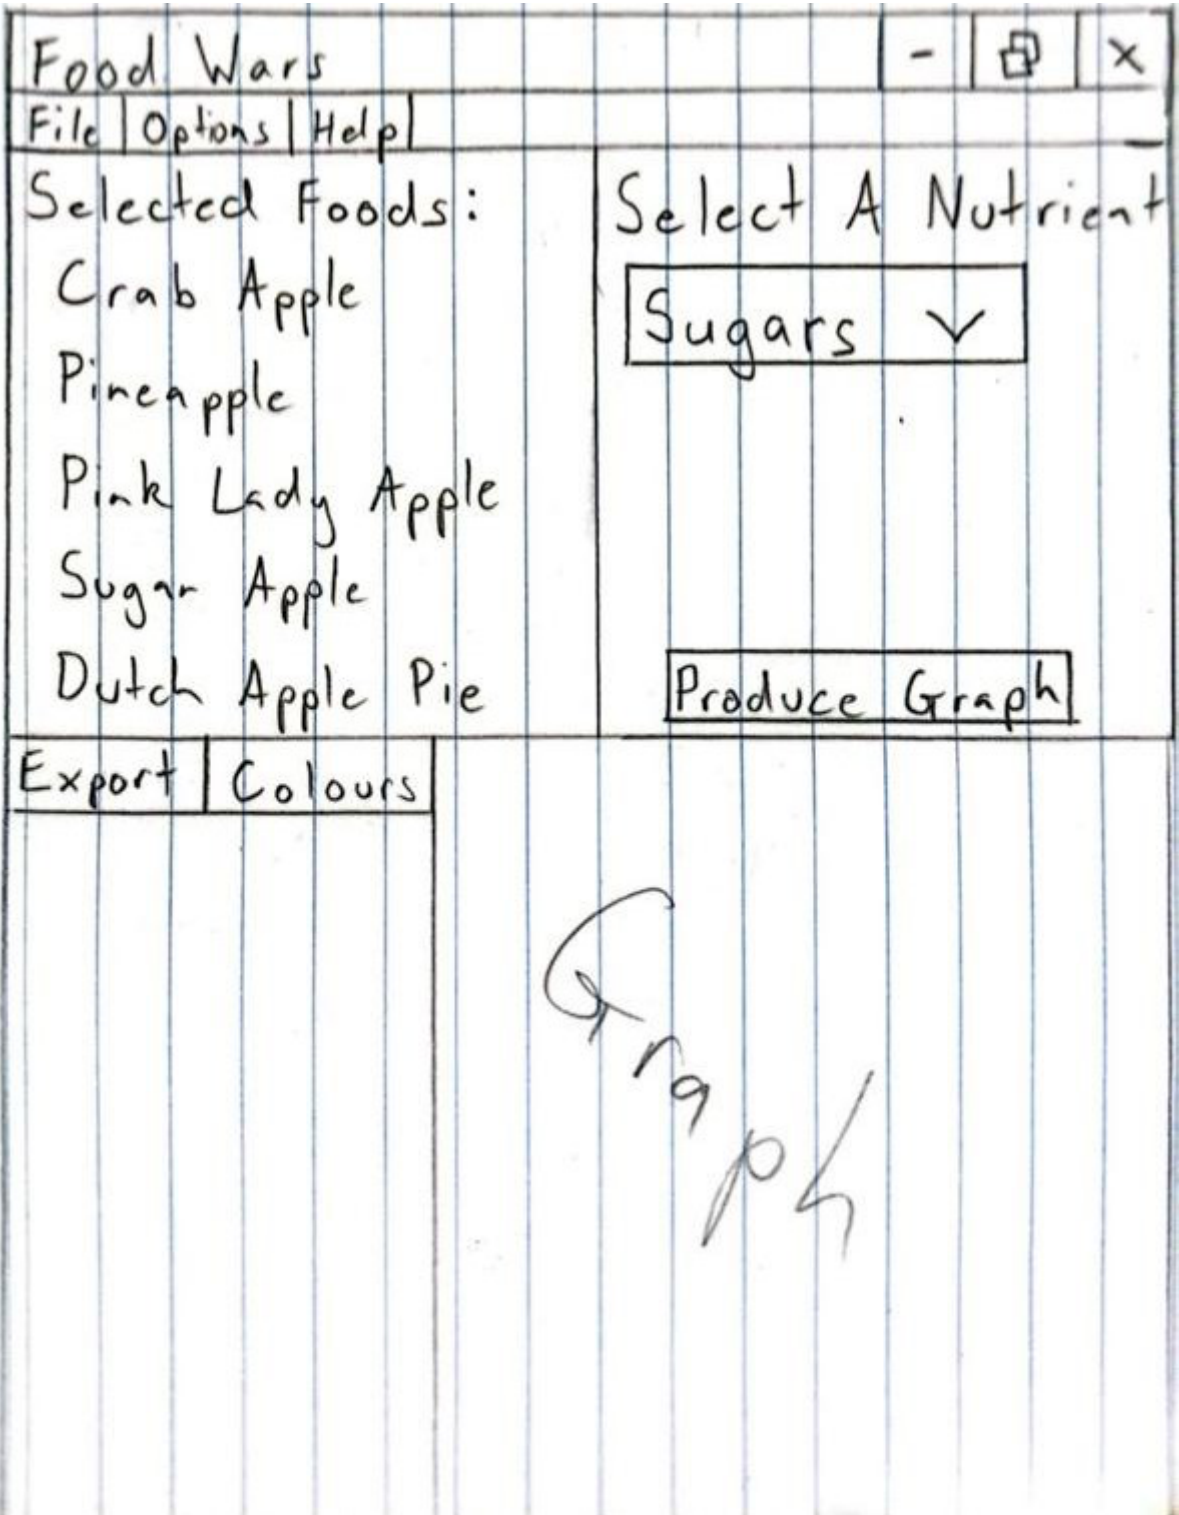 Food Wars - X
File | Options | Help
Selected Foods:
Crab Apple
Pineapple
Pink Lady Apple
Sugar Apple
Dutch Apple Pie
Select A Nutrient
Sugars
Produce Graph
Export | Colours
Graph